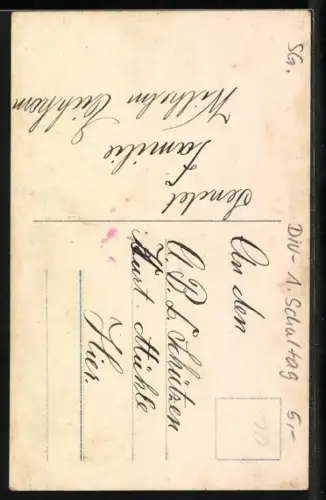 sendet
Familie
Wilhelm Eichhorn
An den
A. B. C. Schützen
Kurt Mühle
Hier.
SG.
DIV- 1. Schultag 5,-